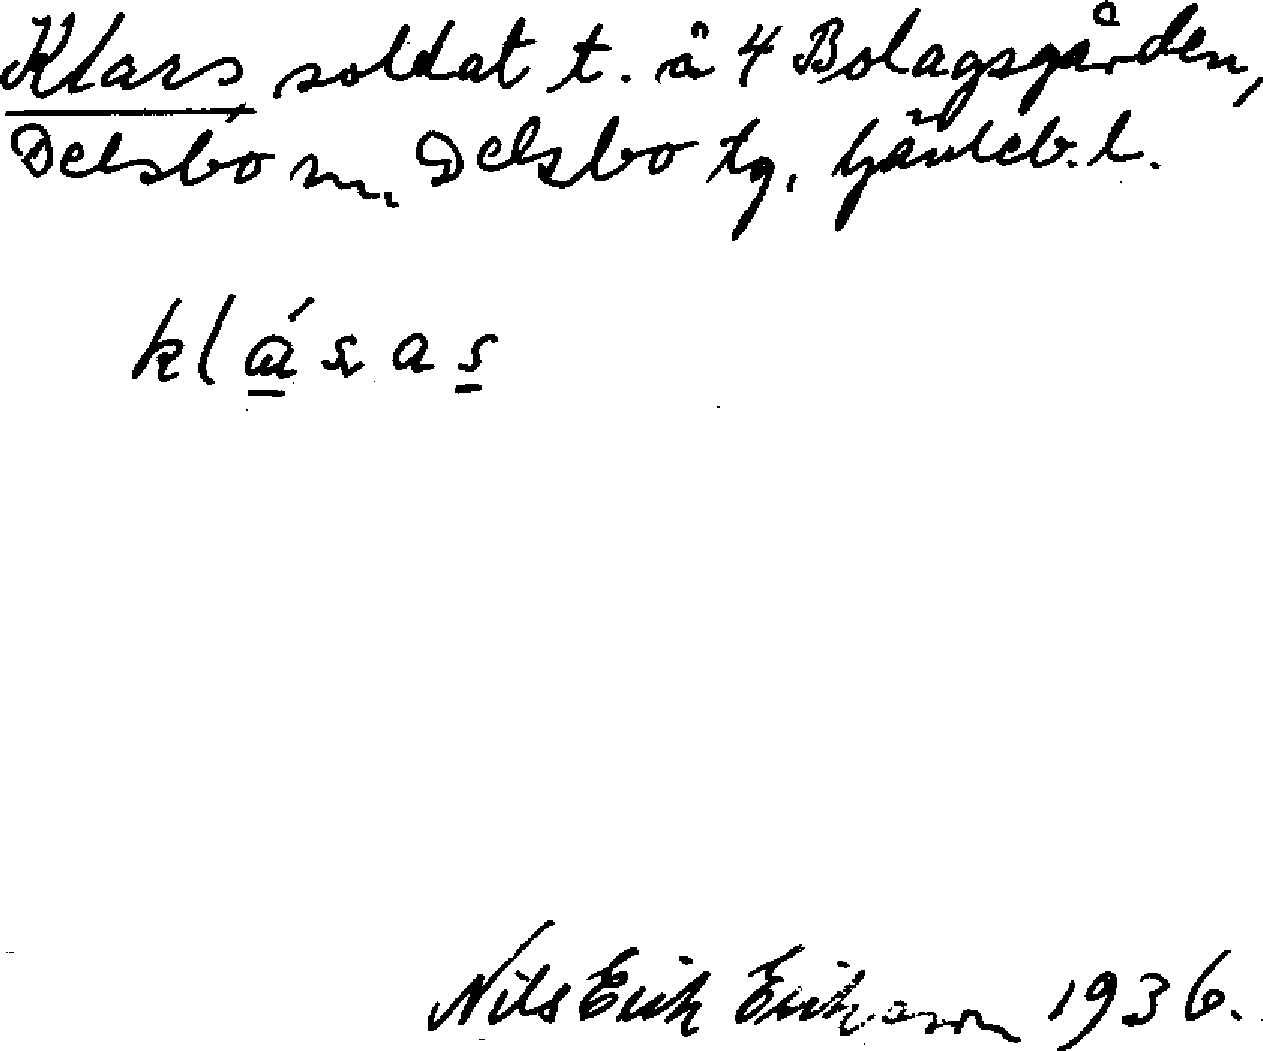 Klars soldat t. å 4 Bolagsgården,
Delsbo sn. Delsbo tg, Gävleb. l.
klásas
Nils Erik Erikson 1936.